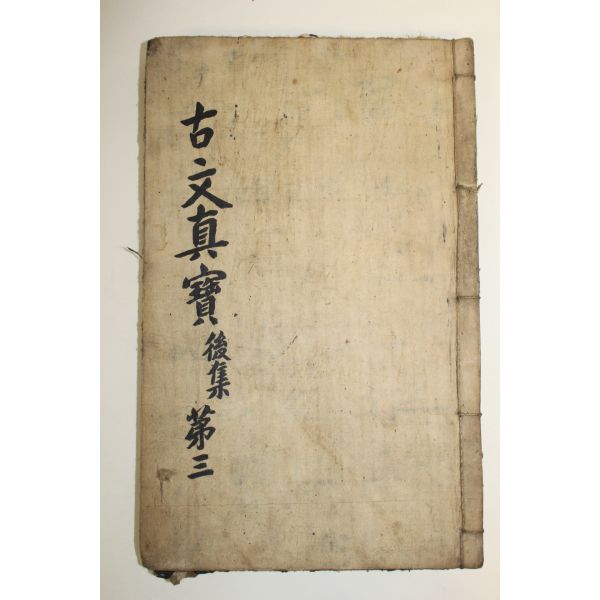 古文真寶後集第三